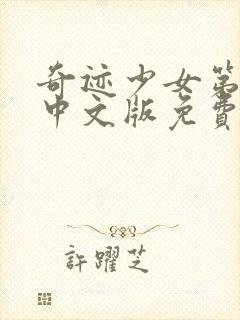 奇迹少女第
中文版免費
許躍芝